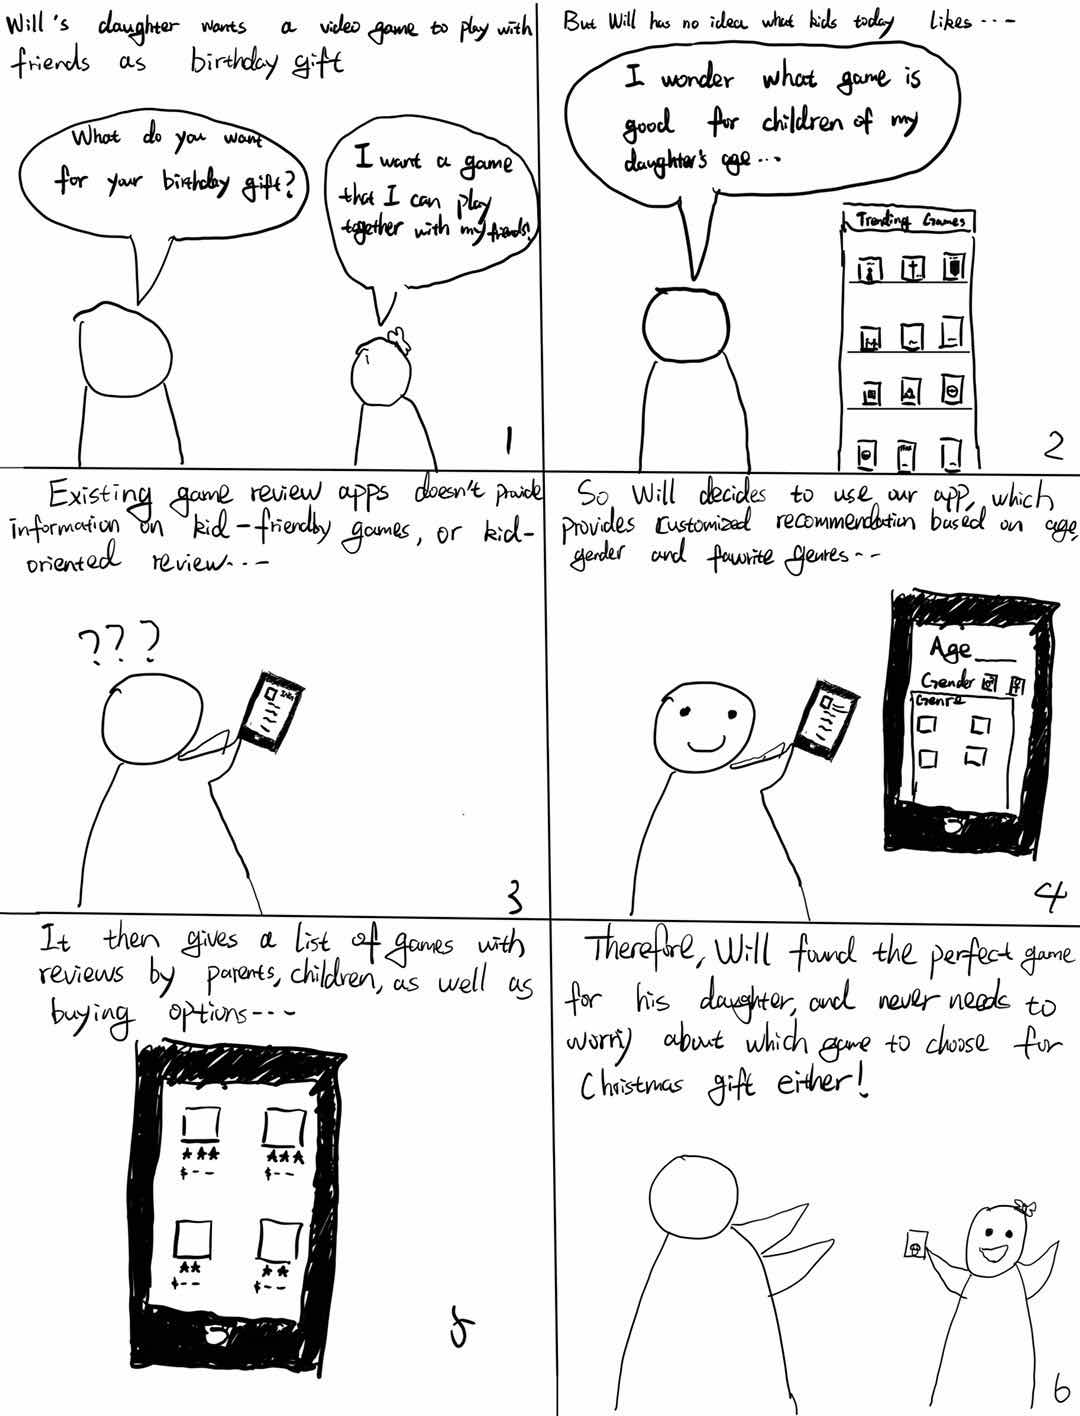 Will's daughter wants a video game to play with
friends as birthday gift
What do you want
for your birthday gift?
I want a game
that I can play
together with my friends!
1
But Will has no idea what kids today likes ---
I wonder what game is
good for children of my
daughter's age...
Trending Games
2
Existing game review apps doesn't provide
information on kid-friendly games, or kid-
oriented review...
???
3
So Will decides to use our app, which
provides customized recommendation based on age,
gender and favorite genres--
Age ___
Gender
Genre
4
It then gives a list of games with
reviews by parents, children, as well as
buying options---
$-- $--
$-- $--
5
Therefore, Will found the perfect game
for his daughter, and never needs to
worry about which game to choose for
Christmas gift either!
6